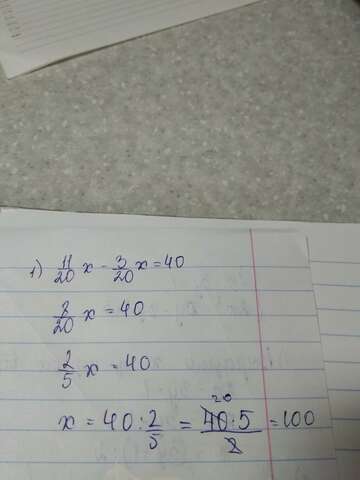 1) 11/20 x - 3/20 x = 40
8/20 x = 40
2/5 x = 40
x = 40 : 2/5 = 40·5/2 = 100
20